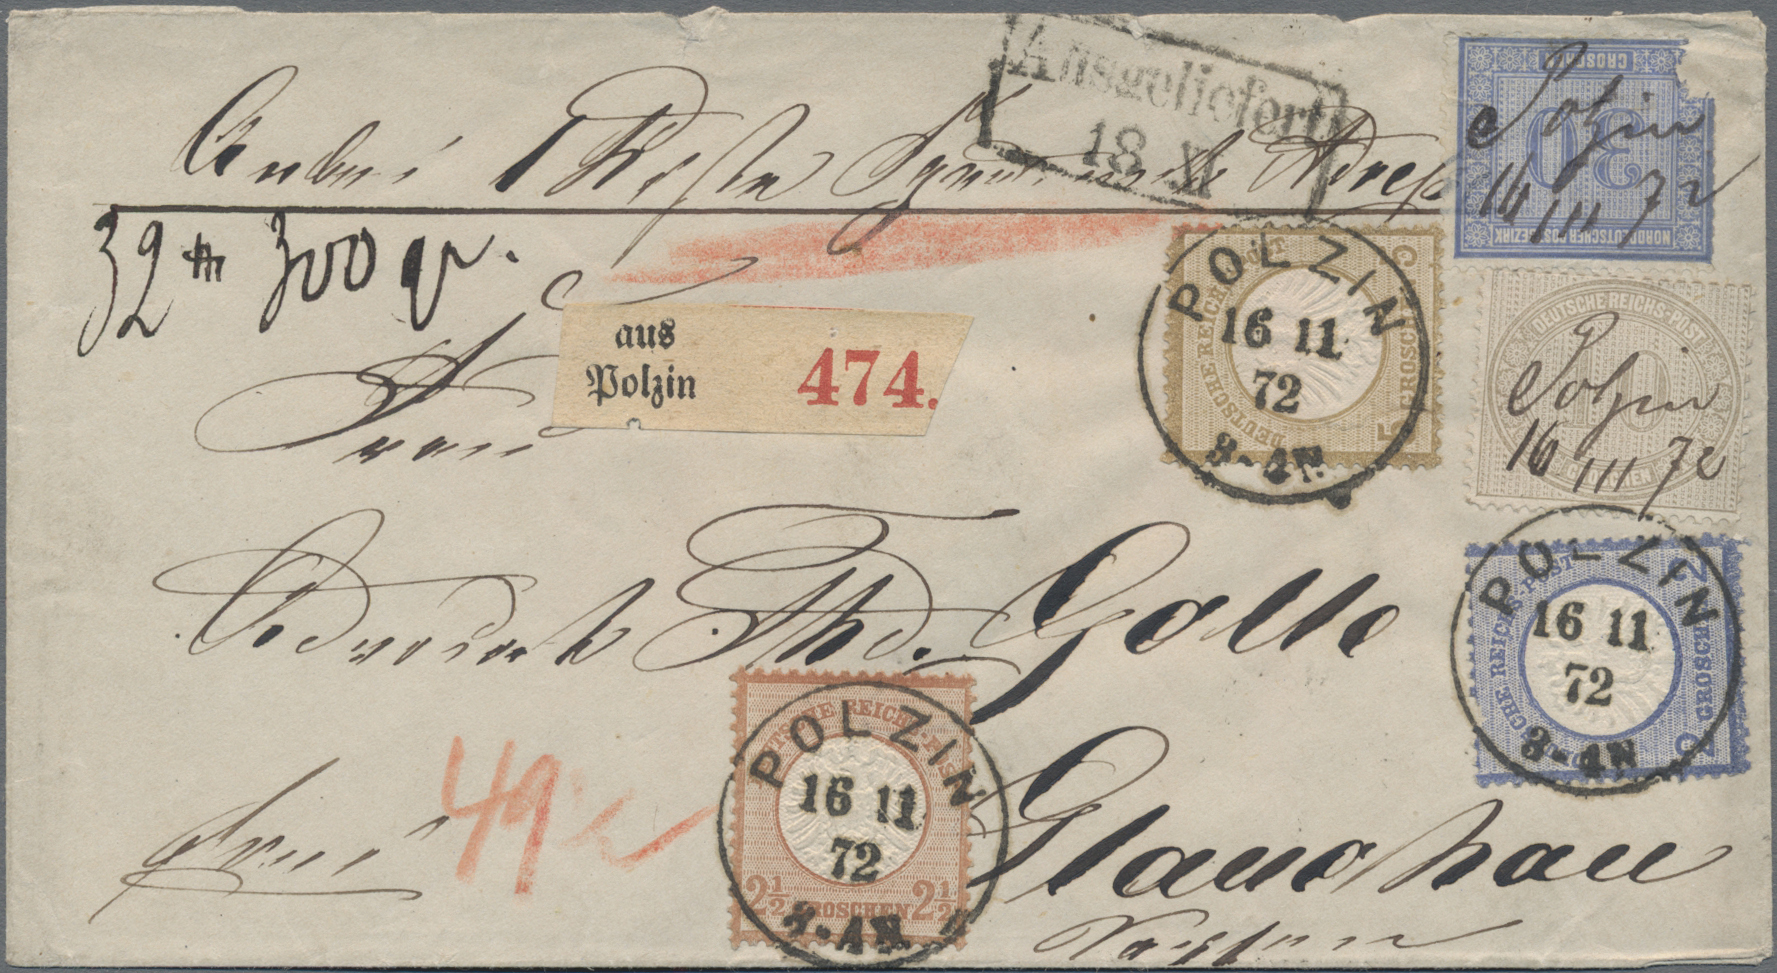 Anbei 1 Kiste gezeichnet Adresse
32 ℔ 300 gr.
Ausgeliefert
18 XI
aus
Polzin
474.
Frau
Advocat Th. Golle
frei
49
Glauchau
Sachsen
GROSCHEN
30
NORDDEUTSCHER POSTBEZIRK
Polzin
16/11 72
DEUTSCHE REICHS-POST
10
GROSCHEN
Polzin
16/11 72
DEUTSCHE REICHS-POST
5 GROSCHEN 5
POLZIN
16 11
72
3-4N.
DEUTSCHE REICHS-POST
2 GROSCHEN 2
POLZIN
16 11
72
3-4N
DEUTSCHE REICHS-POST
2½ GROSCHEN 2½
POLZIN
16 11
72
3-4N